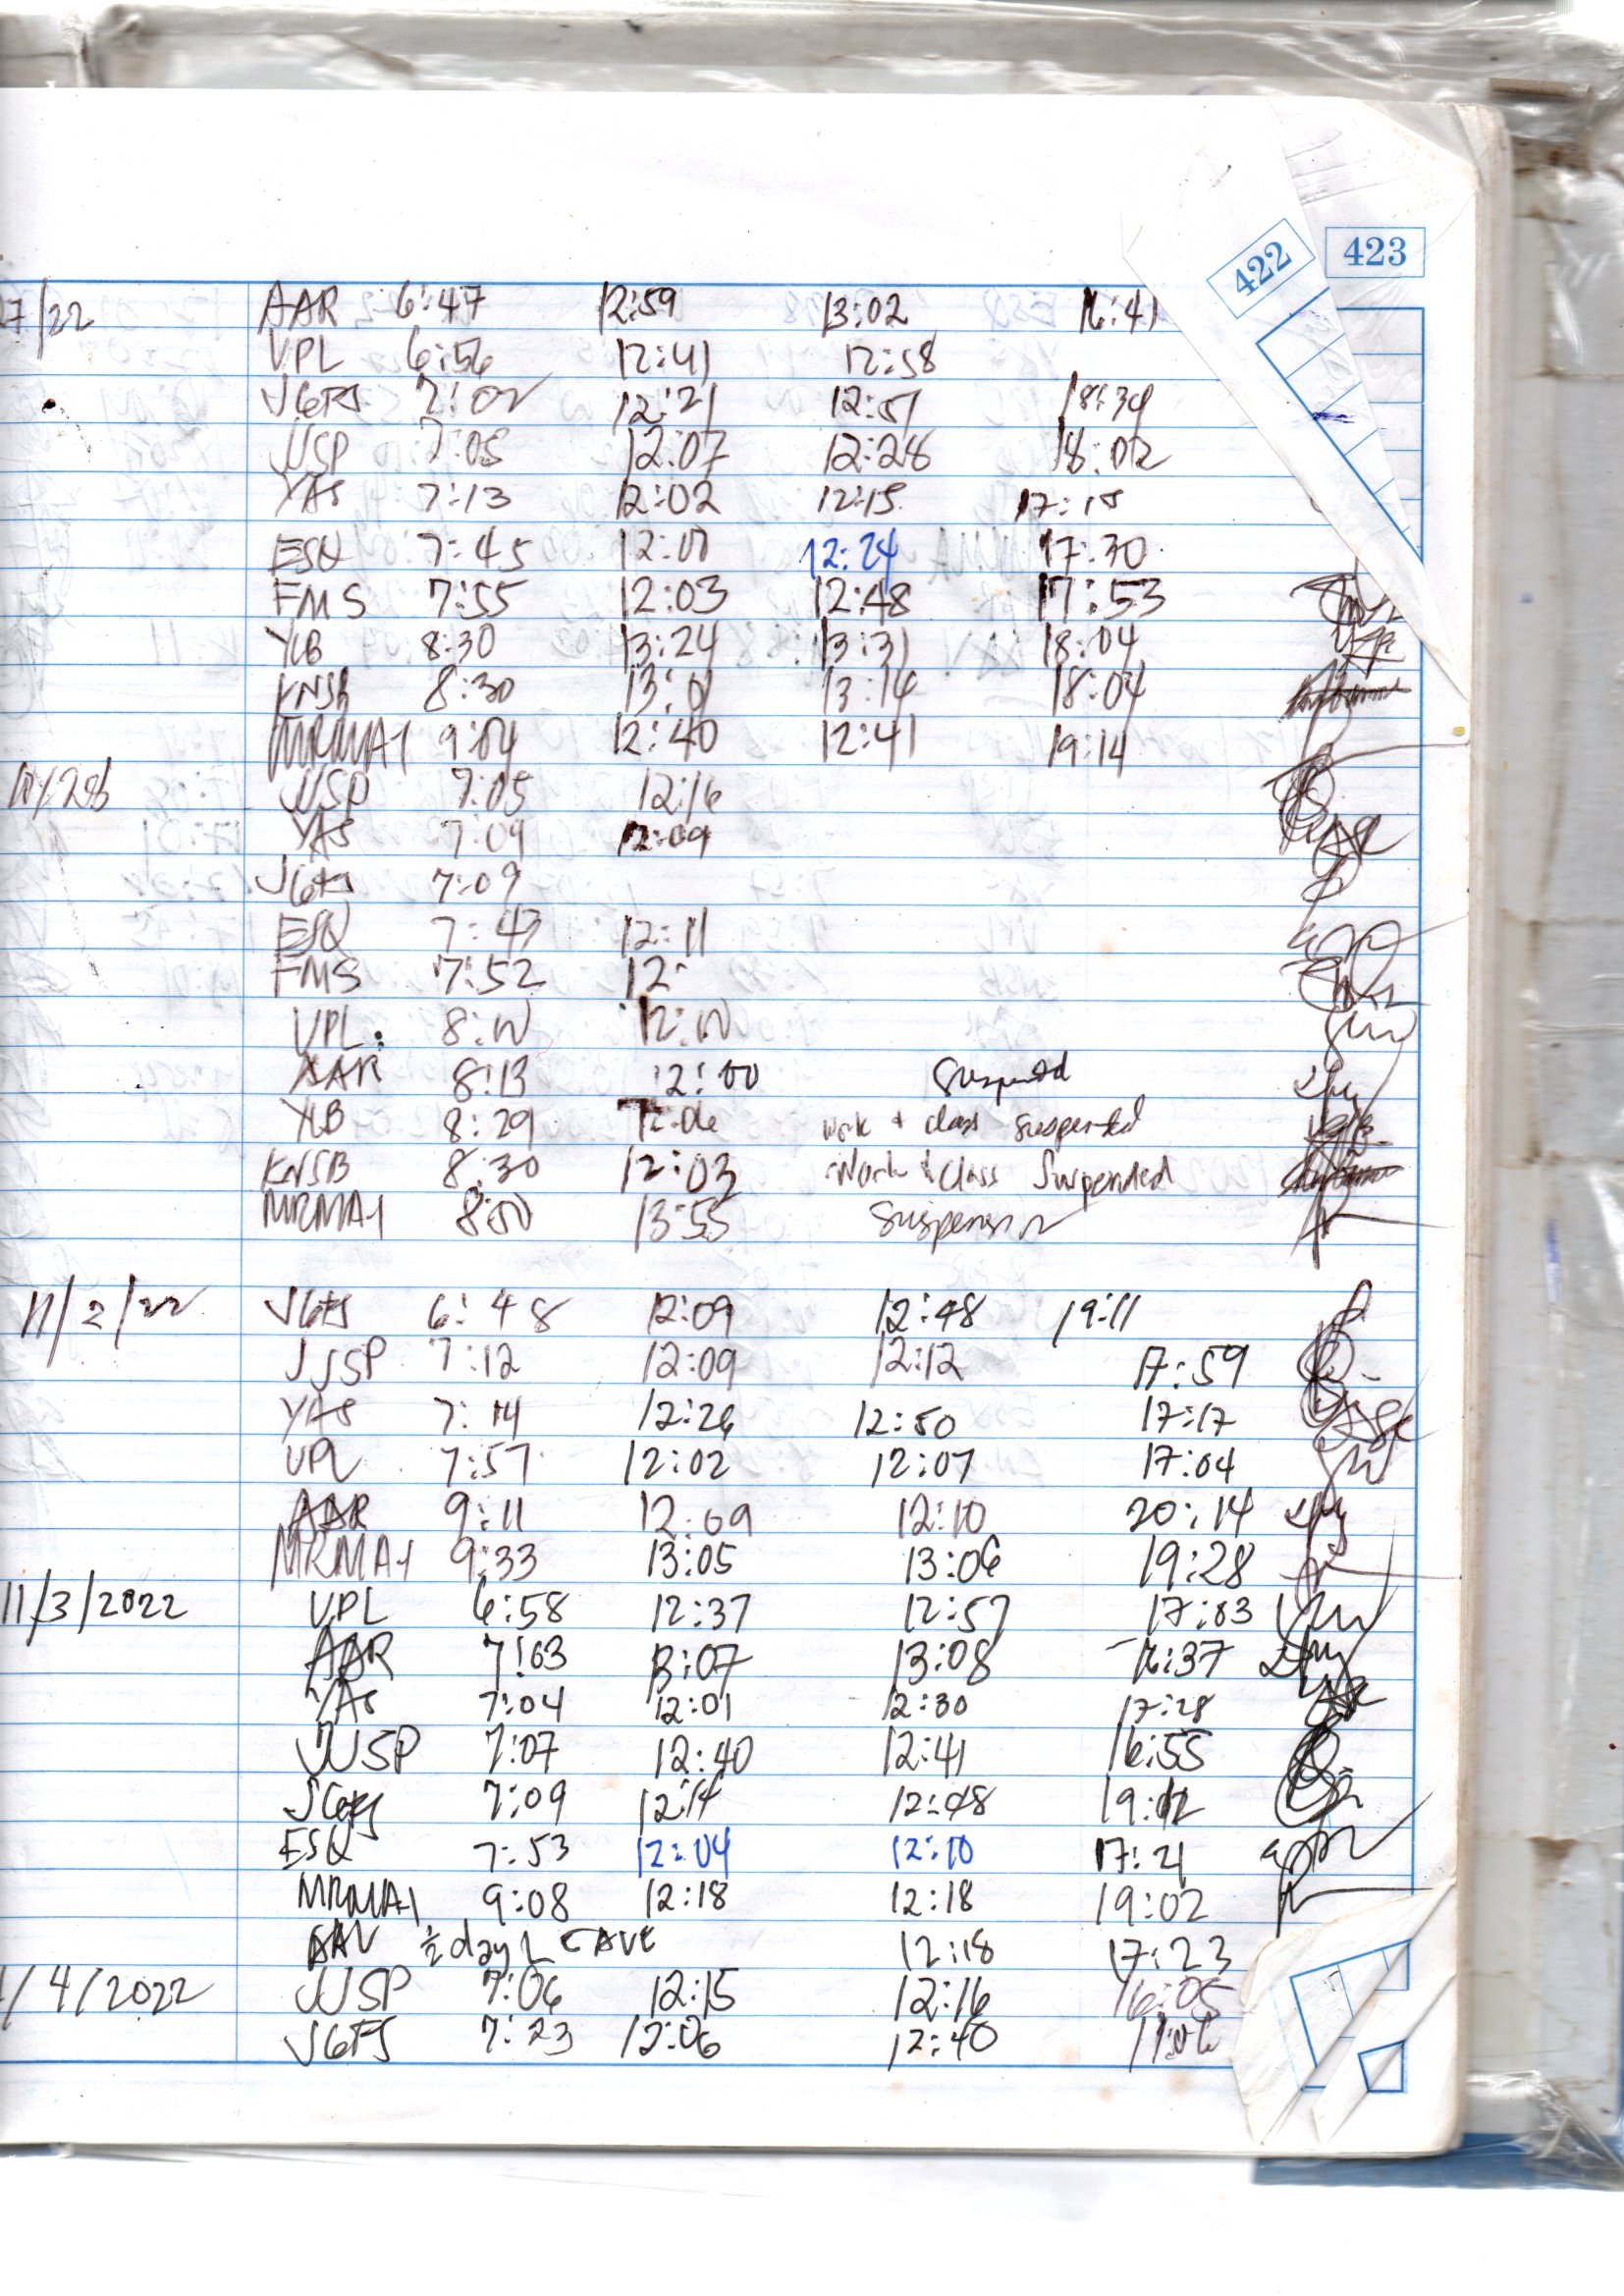 422 423
7/22 AAR 6:47 12:59 13:02 16:41
VPL 6:56 12:41 12:58
JGFS 7:02 12:21 12:51 18:34
JJSP 7:05 12:07 12:28 18:02
YAS 7:13 12:02 12:15 17:15
ESQ 7:45 12:00 12:24 17:30
FMS 7:55 12:03 12:48 17:53
YLB 8:30 13:24 13:31 18:04
KNSB 8:30 13:01 13:14 18:04
MRMA-1 9:04 12:40 12:41 19:14
JJSP 7:05 12:16
YAS 7:09 12:09
JGFS 7:09
ESQ 7:43 12:11
FMS 7:52 12:
VPL 8:00 12:00
AAR 8:13 12:00 Suspended
YLB 8:29 12:06 work & class suspended
KNSB 8:30 12:03 Work & Class Suspended
MRMA-1 8:00 13:55 Suspension
11/2/22 JGFS 6:48 12:09 12:48 19:11
JJSP 7:12 12:09 12:12 17:59
YAS 7:14 12:26 12:50 17:17
VPL 7:57 12:02 12:07 17:04
AAR 9:11 12:09 12:10 20:14
MRMA-1 9:33 13:05 13:06 19:28
11/3/2022 VPL 6:58 12:37 12:57 17:03
AAR 7:03 13:07 13:08 16:37
YAS 7:04 12:01 12:30 17:28
JJSP 7:07 12:40 12:41 16:55
JGFS 7:09 12:14 12:48 19:02
ESQ 7:53 12:04 12:10 17:21
MRMA-1 9:08 12:18 12:18 19:02
½ day LEAVE 12:18 17:23
/4/2022 JJSP 7:06 12:15 12:16 16:05
JGFS 7:23 12:06 12:40